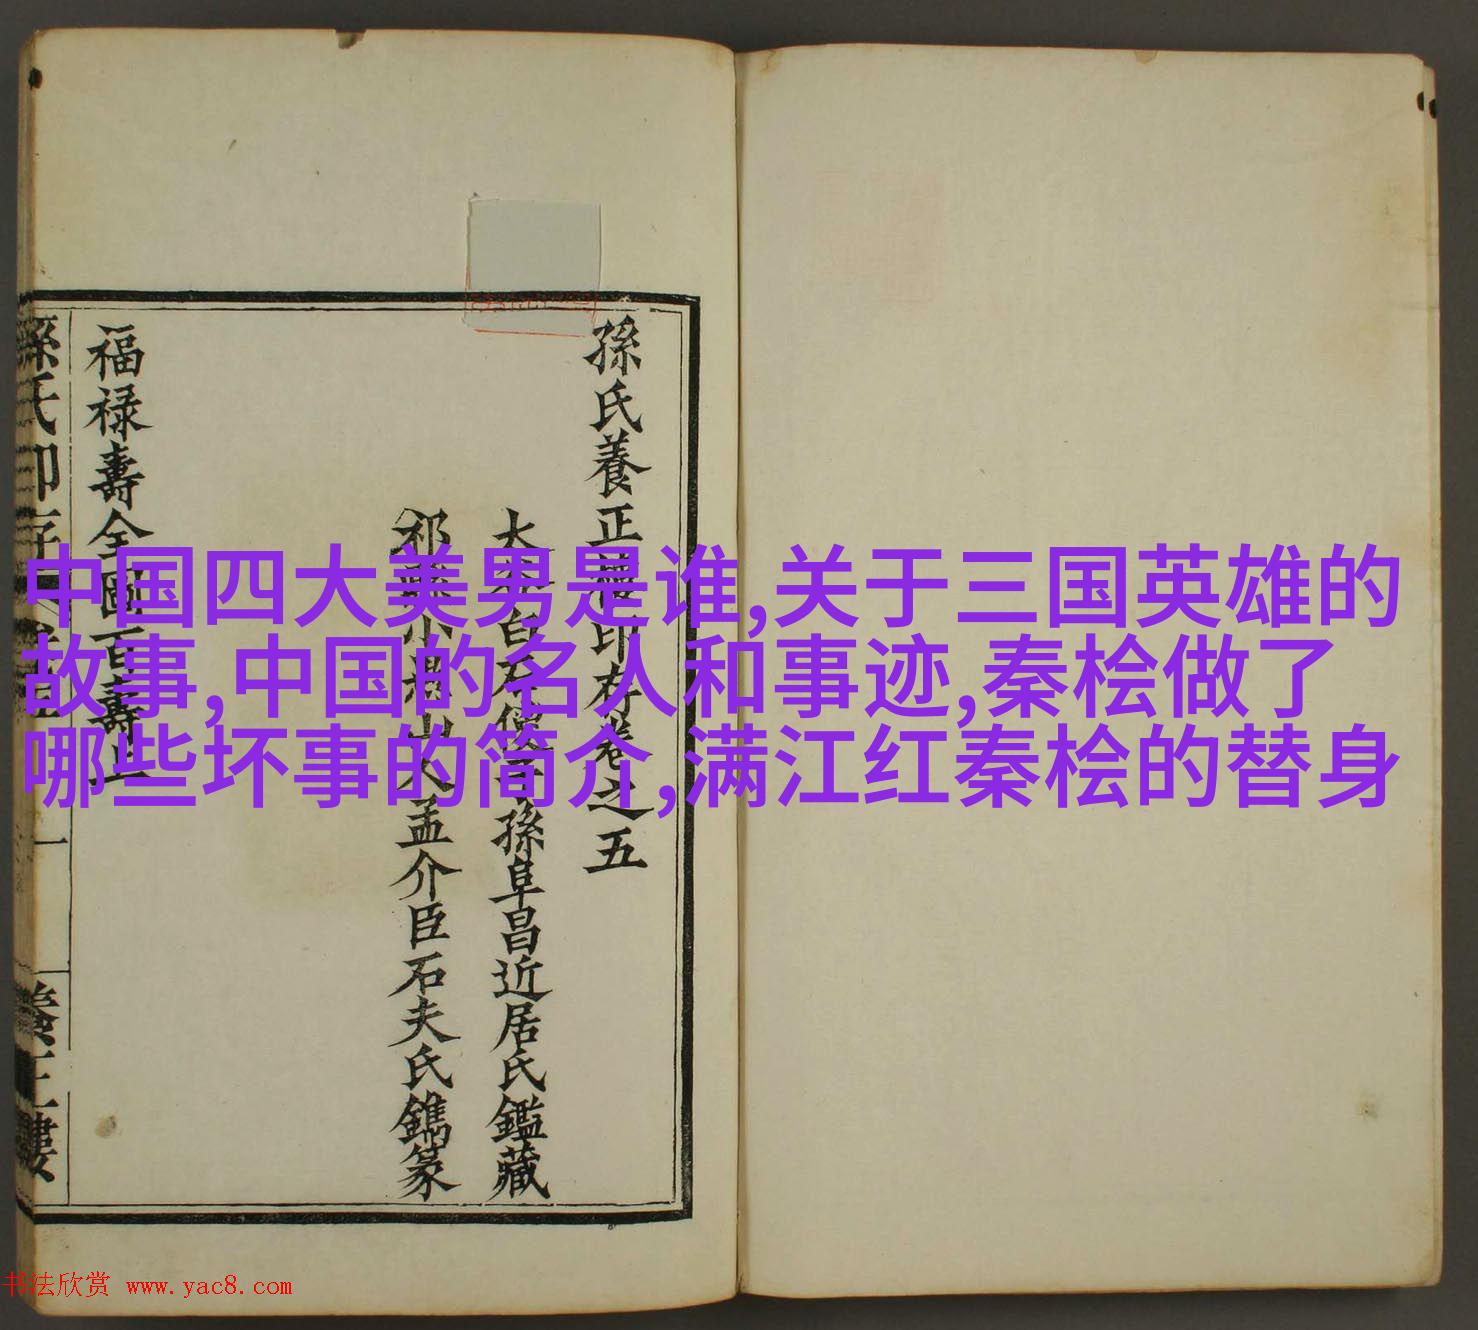 中国四大美男是谁,关于三国英雄的
故事,中国的名人和事迹,秦桧做了
哪些坏事的简介,满江红秦桧的替身
孫氏養正樓印存卷之五
太谷白石孫阜昌近居氏鑑藏
祁縣小山人孟介臣石夫氏鐫篆
福禄壽全圖百壽止
孫氏印存
一
養正樓
书法欣赏 www.yac8.com